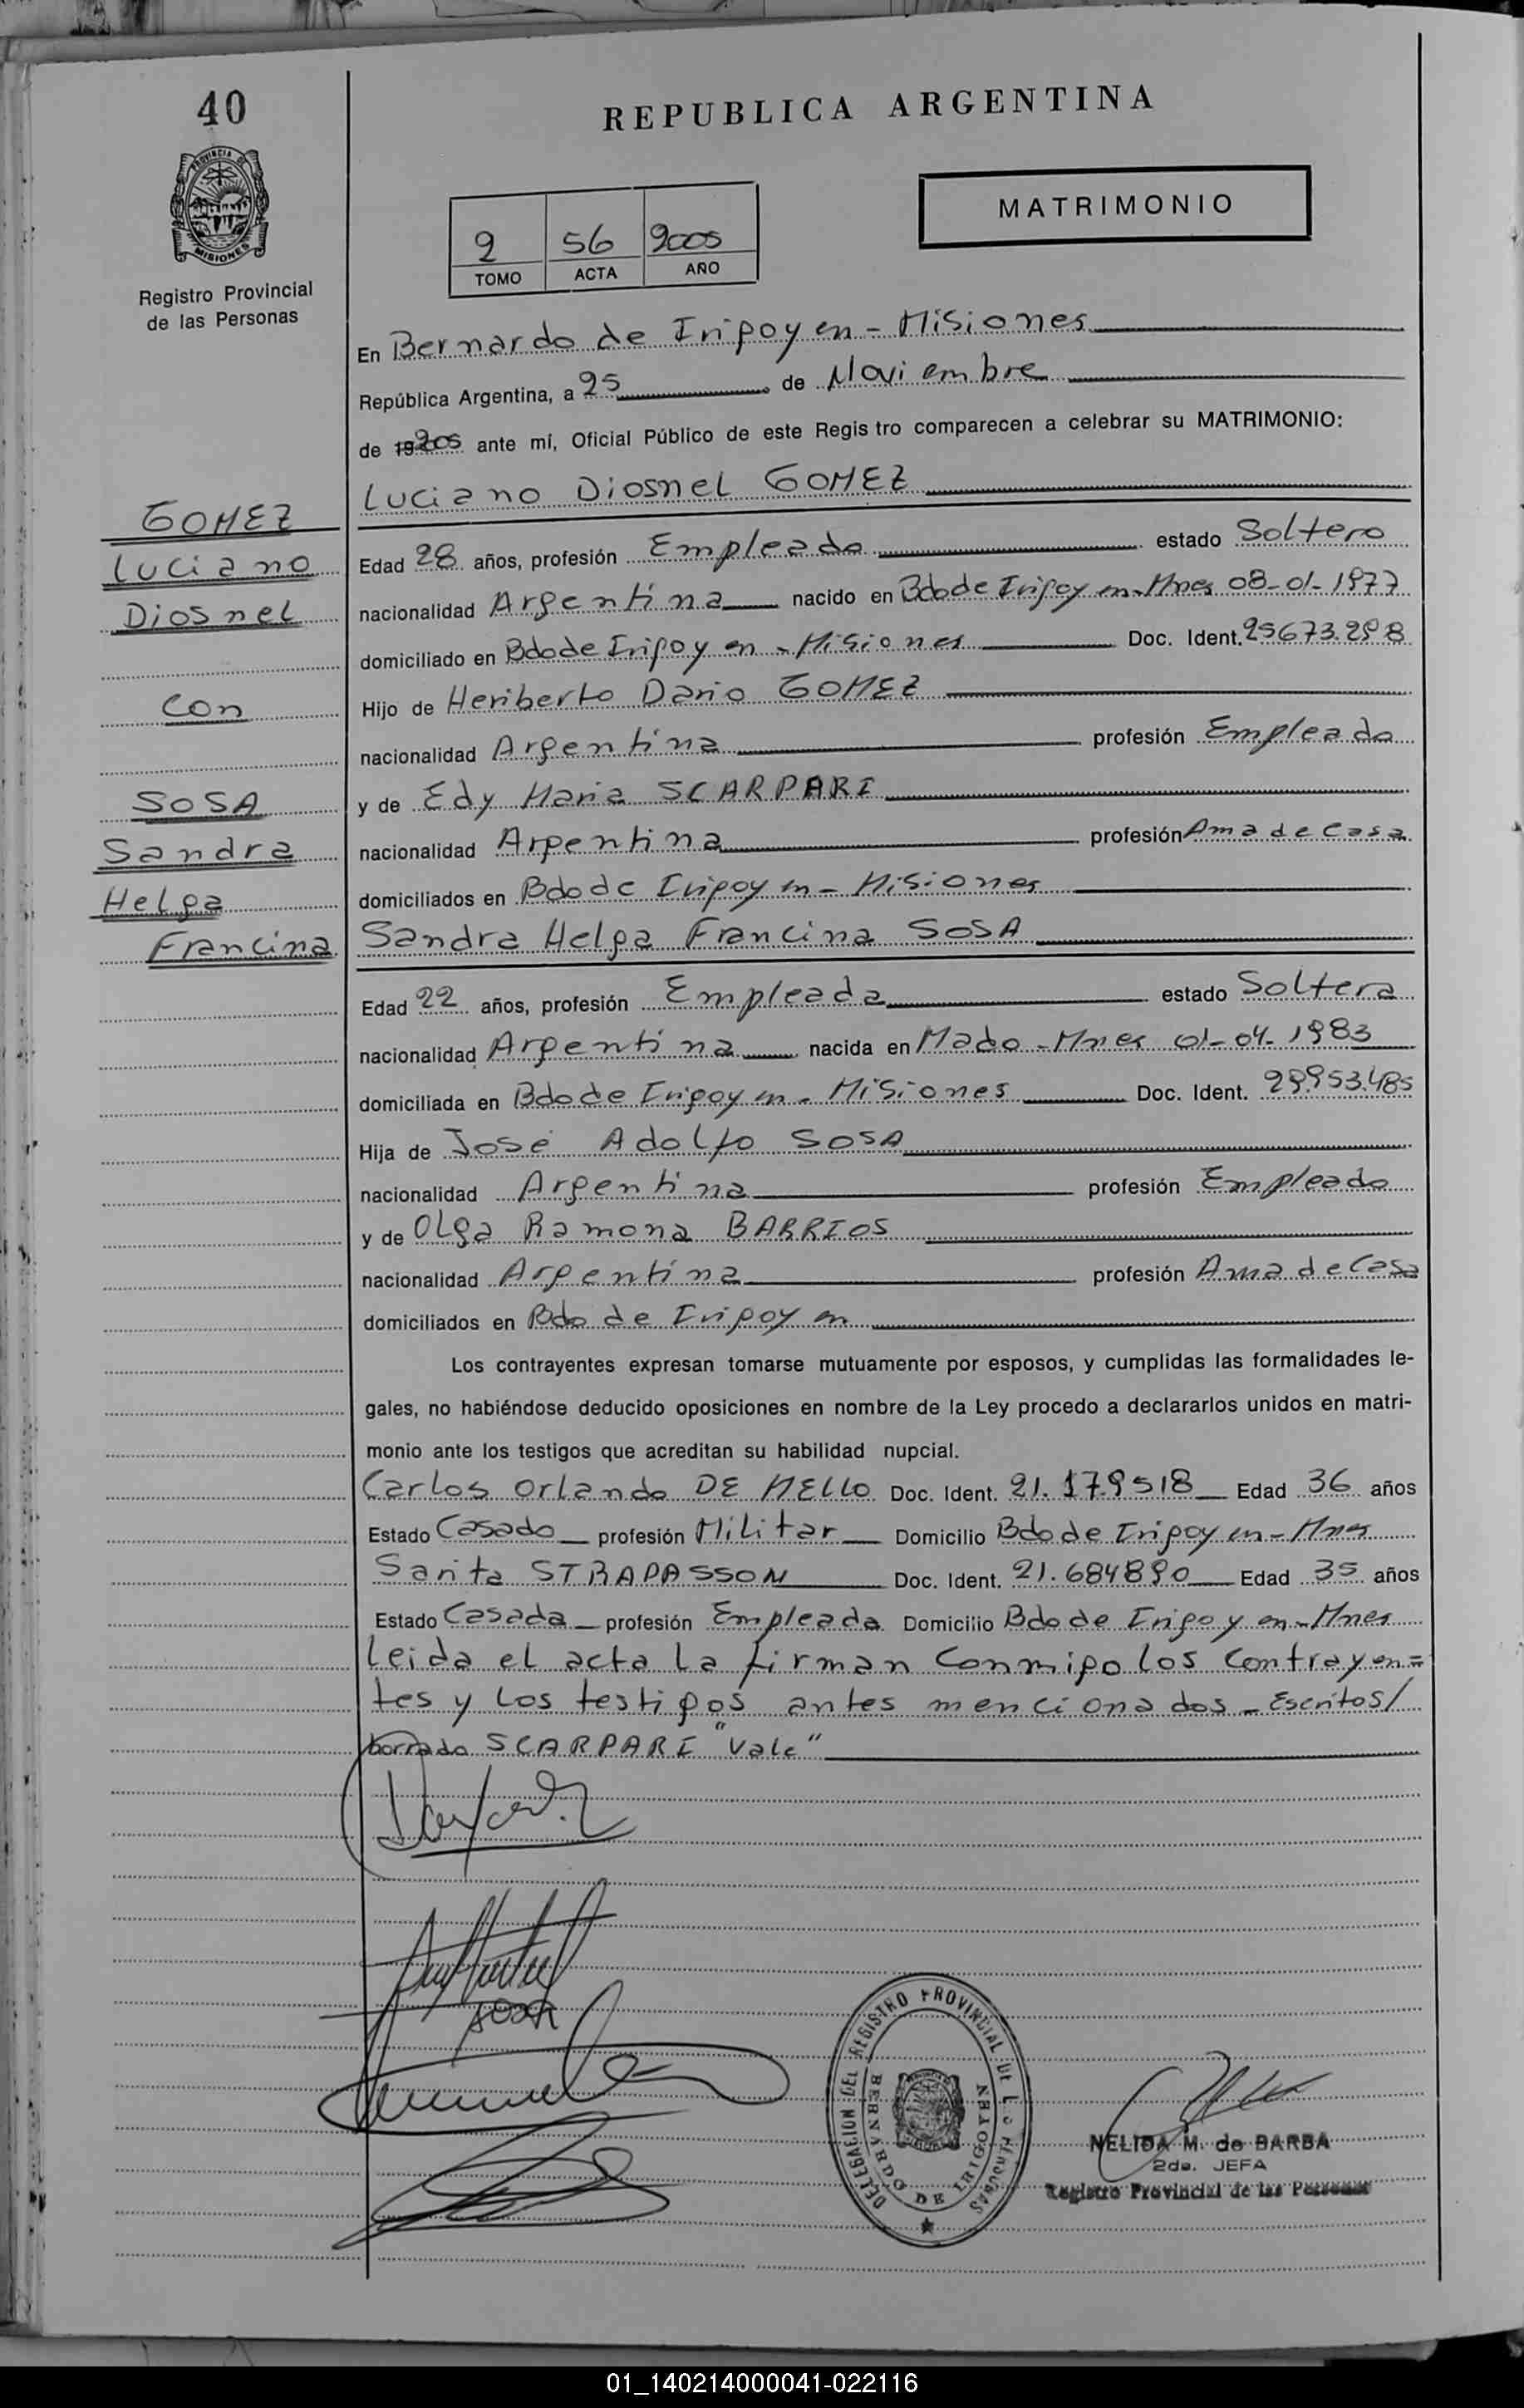 40
REPUBLICA ARGENTINA
PROVINCIA DE
MISIONES
Registro Provincial
de las Personas
MATRIMONIO
2 56 2005
TOMO ACTA AÑO
En Bernardo de Irigoyen - Misiones
República Argentina, a 25 de Noviembre
de 2005 ante mí, Oficial Público de este Registro comparecen a celebrar su MATRIMONIO:
Luciano Diosnel GOMEZ
GOMEZ
Luciano
Diosnel
con
SOSA
Sandra
Helga
Francina
Edad 28 años, profesión Empleado estado Soltero
nacionalidad Argentina nacido en Bdo de Irigoyen - Mnes 08-01-1977
domiciliado en Bdo de Irigoyen - Misiones Doc. Ident. 25673.298
Hijo de Heriberto Dario GOMEZ
nacionalidad Argentina profesión Empleado
y de Edy Maria SCARPARI
nacionalidad Argentina profesión Ama de Casa
domiciliados en Bdo de Irigoyen - Misiones
Sandra Helga Francina SOSA
Edad 22 años, profesión Empleada estado Soltera
nacionalidad Argentina nacida en Mado - Mnes 01-04-1983
domiciliada en Bdo de Irigoyen - Misiones Doc. Ident. 29.953.485
Hija de José Adolfo SOSA
nacionalidad Argentina profesión Empleado
y de Olga Ramona BARRIOS
nacionalidad Argentina profesión Ama de Casa
domiciliados en Bdo de Irigoyen
Los contrayentes expresan tomarse mutuamente por esposos, y cumplidas las formalidades le-
gales, no habiéndose deducido oposiciones en nombre de la Ley procedo a declararlos unidos en matri-
monio ante los testigos que acreditan su habilidad nupcial.
Carlos Orlando DE MELLO Doc. Ident. 21.179518 Edad 36 años
Estado Casado profesión Militar Domicilio Bdo de Irigoyen - Mnes
Sarita STRAPASSON Doc. Ident. 21.684890 Edad 35 años
Estado Casada profesión Empleada Domicilio Bdo de Irigoyen - Mnes
Leida el acta la firman conmigo los contrayen=
tes y los testigos antes mencionados - Escritos/
borrado SCARPARI "Vale"
SOSA
DELEGACION DEL REGISTRO PROVINCIAL DE LAS PERSONAS
BERNARDO DE IRIGOYEN
NELIDA M. de BARBA
2da. JEFA
Registro Provincial de las Personas
01_140214000041-022116